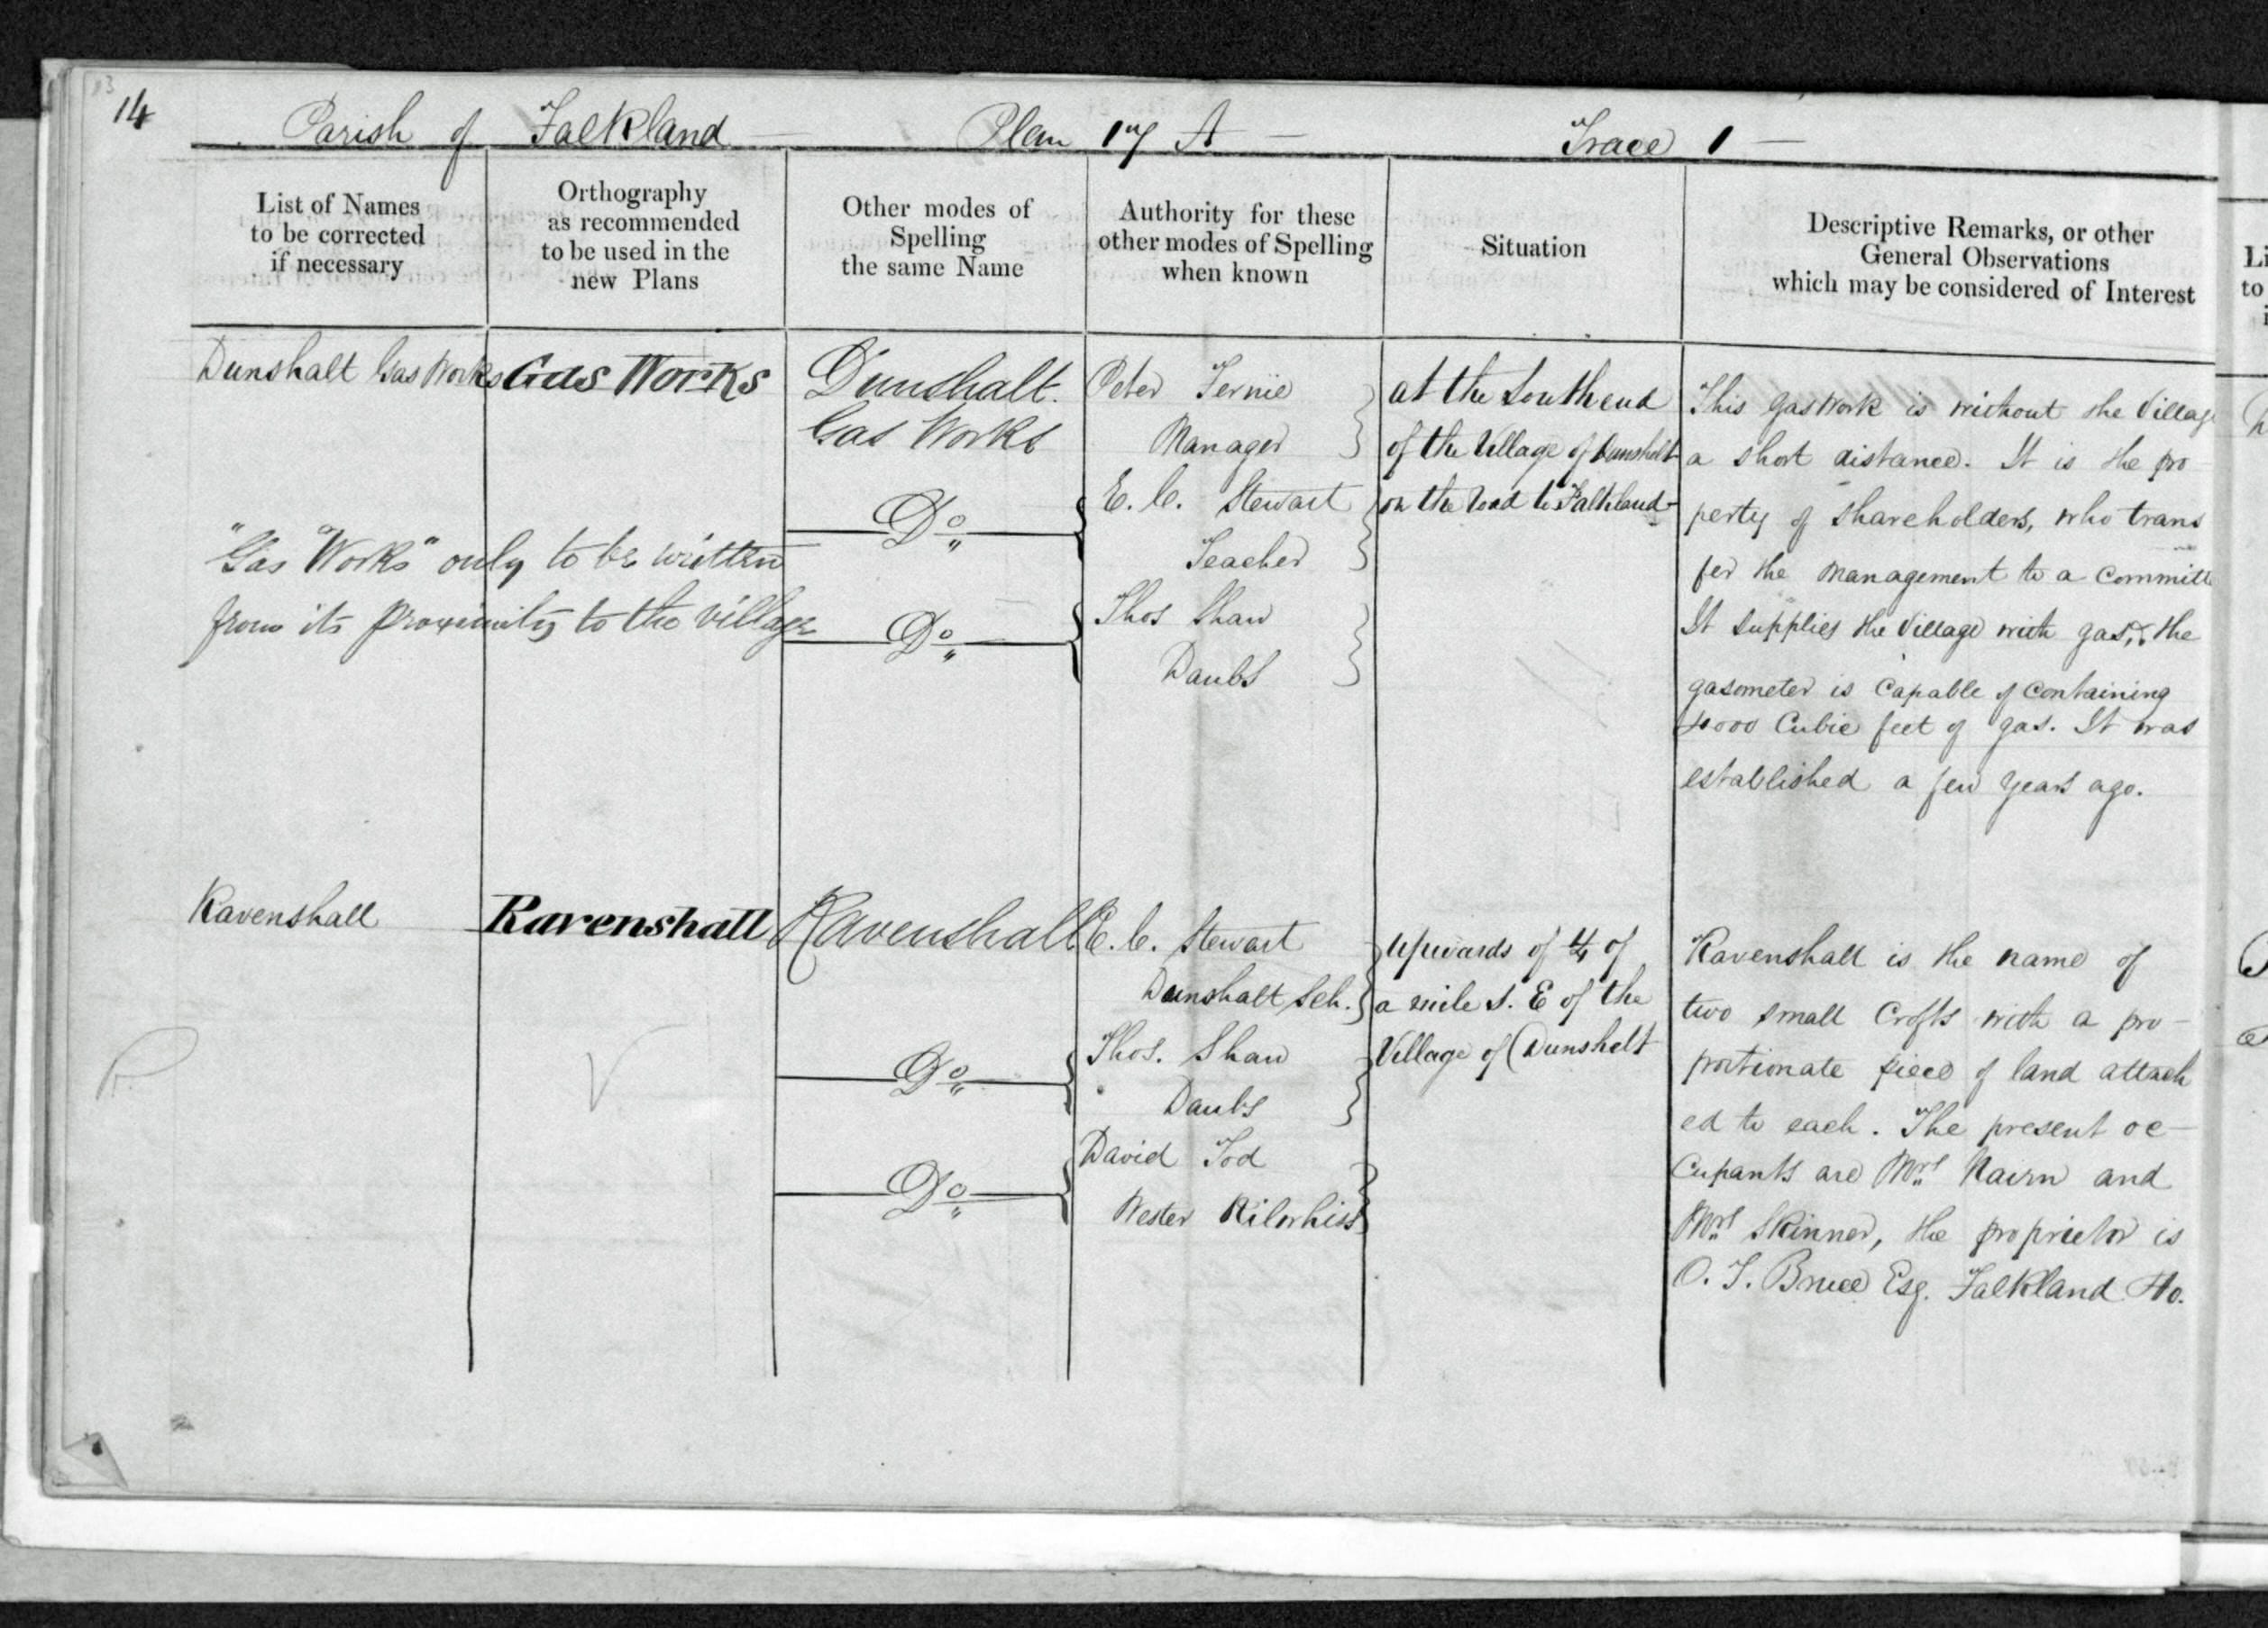 14
Parish of Falkland — Plan 17 A — Trace 1 —
List of Names
to be corrected
if necessary
Orthography
as recommended
to be used in the
new Plans
Other modes of
Spelling
the same Name
Authority for these
other modes of Spelling
when known
Situation
Descriptive Remarks, or other
General Observations
which may be considered of Interest
Dunshalt Gas Works
Gas Works
Dunshalt.
Gas Works
Do
Do
Peter Fernie
Manager
E. C. Stewart
Teacher
Thos Shaw
Daubs
at the South end
of the Village of Dunshelt
on the road to Falkland
This Gas Work is without the Village
a short distance. It is the pro
perty of shareholders, who trans
fer the management to a Committ
It supplies the Village with gas, & the
gasometer is Capable of Containing
4000 Cubic feet of gas. It was
established a few years ago.
"Gas Works" only to be written
from its proximity to the village
Ravenshall
Ravenshall
Ravenshall
Do
Do
E. C. Stewart
Dunshalt Sch.
Thos. Shaw
Daubs
David Tod
Wester Kilwhiss
Upwards of 1/4 of
a mile S. E of the
Village of Dunshelt
Ravenshall is the name of
two small Crofts with a pro-
portionate piece of land attach
ed to each. The present oc-
cupants are Mrs Nairn and
Mrs Skinner, the proprietor is
O. T. Bruce Esq. Falkland Ho.